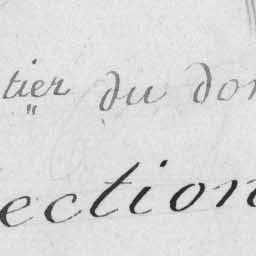 tier du don
ection